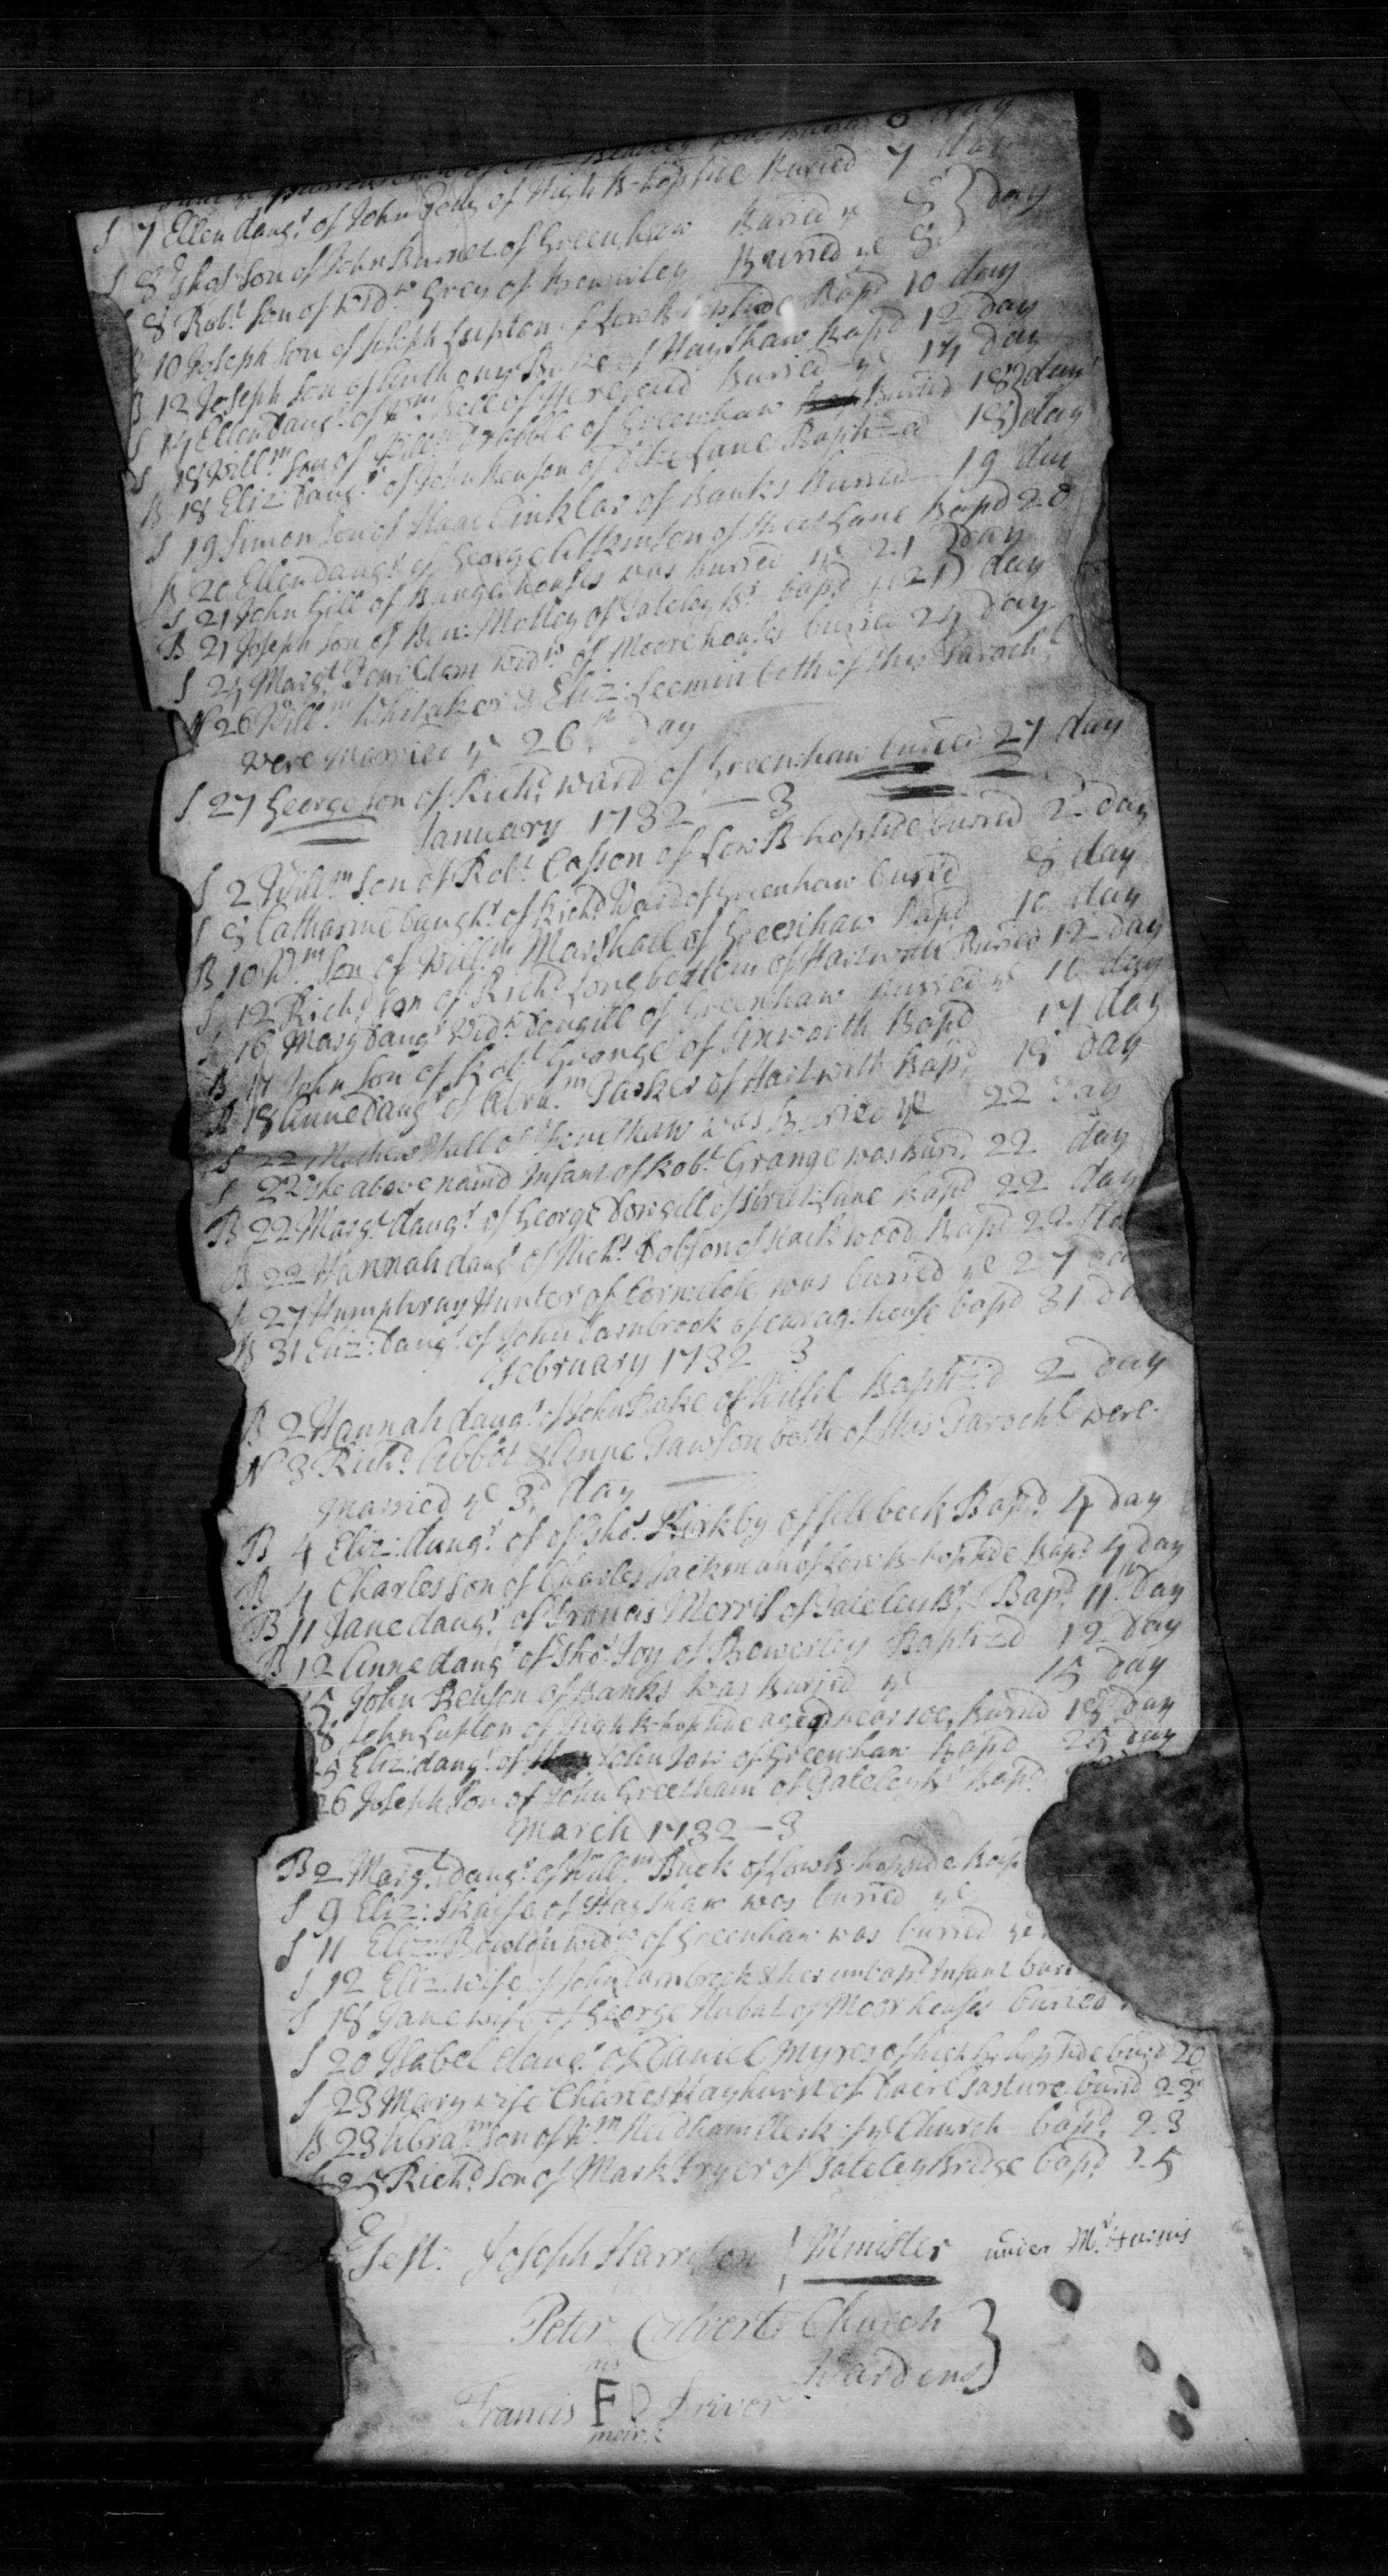 S 7 Ellen daugr. of John of High B-hopside Buried 7 day
S 8 Thos. son of John Burnet of Greenhaw Buried ye 8 } day
S 8 Robt. son of Widw. Grey of Bewerley Buried ye 8
B 10 Joseph son of Joseph Lupton of Low B-hopside Bapd. 10 day
B 12 Joseph son of Anthony of Hayshaw Bapd. 12 day
S 14 Ellen Daugr. of Wm. Bell of Buried ye 14 day
S 18 Willm. son of of Greenhaw Buried 18 } day
B 18 Eliz: Daugr. of John Benson of Lane Baptized 18 } day
S 19 Simon son of Isaac Pinklar of Banks Buried 19 day
B 20 Ellen Daugr. of George Atkinson of Street Lane Bapd 20
S 21 John Gill of houses was buried ye 21 } day
B 21 Joseph son of Ben: Motley of Pateley Br. bapd. ye 21 } day
S 24 Margt. widw. of Moorehouses buried 24 day
N 26 Willm. Whitaker & Eliz: Leemin both of this Parochl.
were married ye 26th. Day
S 27 George son of Richd. Ward of Greenhaw buried 27 day
January 1732—3
S 2 Willm. son of Robt. Casson of Low B-hopside buried 2 day
S 8 Catharine Daughr. of Richd. Ward of Greenhaw buried 8 day
B 10 Wm. son of Willm. Marshall of Greenhaw Bapd. 10 day
S 12 Richd. son of Richd. Longbottom of Hartwith Buried 12 day
S 16 Mary Daugr. Widw. Dowgill of Greenhaw buried ye 16 day
B 17 John son of Robt. Grange of Sixworth Bapd 17 day
B 18 Anne Daugr. of Abram. Parker of Hartwith Bapd. 18 Day
S 22 Mathew Hall of was Buried ye 22 day
S 22 The above naimd Infant of Robt. Grange was Burd. 22 day
B 22 Margt. daugr. of George Dowgill of street-Lane Bapd. 22 day
B 22 Hannah daugr. of Richd. Dobson of Hackwood Bapd 22
S 27 Humphray Hunter of Cornclose was buried ye 27 Da
B 31 Eliz: Daugr. of John Darnbrook of house bapd. 31 Da
February 1732 3
B 2 Hannah daugr. of John Bake of Baptizd 2 Day
N 3 Richd. Abbot & Anne Pawson both of this Parochl. were
married ye 3d. day
B 4 Eliz: daugr. of of Thos. Kirkby of fell beck Bapd. 4 Day
B 4 Charles son of Charles Jackman of Low B-hopside Bapd. 4 day
B 11 Jane daugr. of Francis Morris of Pateley Br. Bapd. 11th Day
B 12 Anne daugr. of Thos. Joy of Bewerley Baptizd 12 Day
15 John Benson of Banks was Buried ye 15 day
18 John Lupton of High B-hopside aged near 100, Buried 18 day
25 Eliz: daugr. of John Low of Greenhaw Bapd 25 day
26 Joseph Son of John Greetham of Pateley Br Bapd.
March 1732—3
B 2 Margt. Daugr. of Willm. Buck of Low B-hopside Bap
S 9 Eliz: Skaife of Hayshaw was buried ye
S 11 Eliz: widw. of Greenhaw was buried ye
S 12 Eliz. wife of John Darnbrook & her unbapd. Infant buri
S 18 Jane wife of George Hubat of Moorhouses buried
S 20 Isabel daugr. of Daniel Myres of high B-hopside burd 20
S 23 Mary wife Charles Hayhurst of pasture burid 23
B 23 Abram son of Wm Needham Clerk of ye Church bapd. 23
B 25 Richd son of Mark Fryer of Pateley Bridge bapd 25
Test: Joseph Harrison } Minister under Mr. Furnis
Peter Calvert Church }
his Wardens
Francis F D Driver
mark